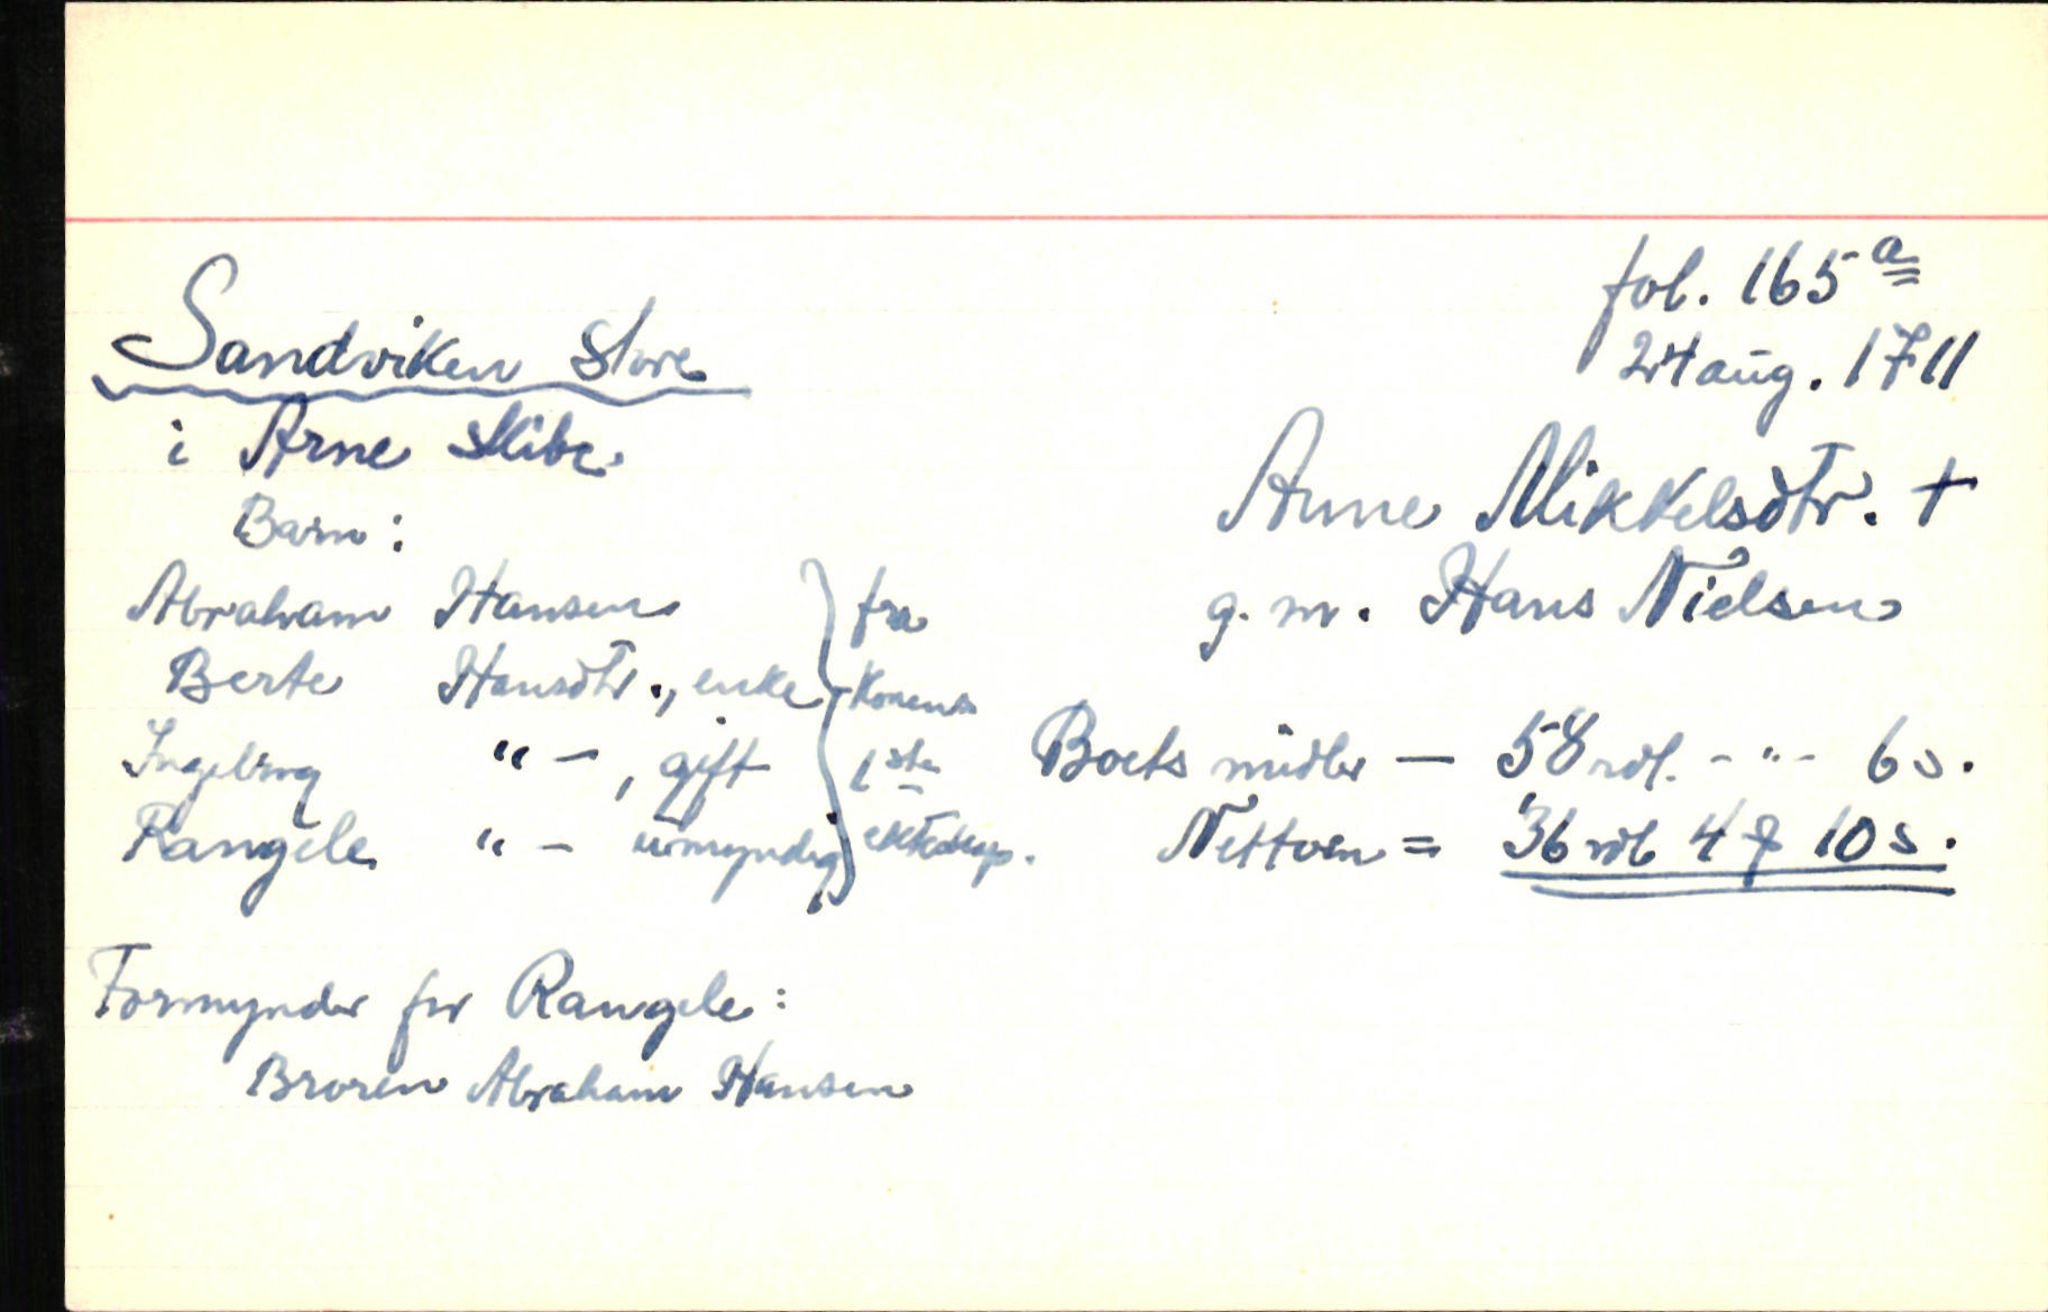 fol. 165 a
24 aug. 1711
Sandviken store
i Arne skibr.
Anne Mikkelsdtr. †
g. m. Hans Nielsen
Barn:
Abraham Hansen
Berte Hansdtr., enke
Ingebrog " - , gift
Rangele " - umyndig
fra
konens
1ste
ekteskap.
Boets midler — 58 rdl. - " - 6 s.
Nettoen = 36 rdl 4 # 10 s.
Formynder for Rangele:
Broren Abraham Hansen